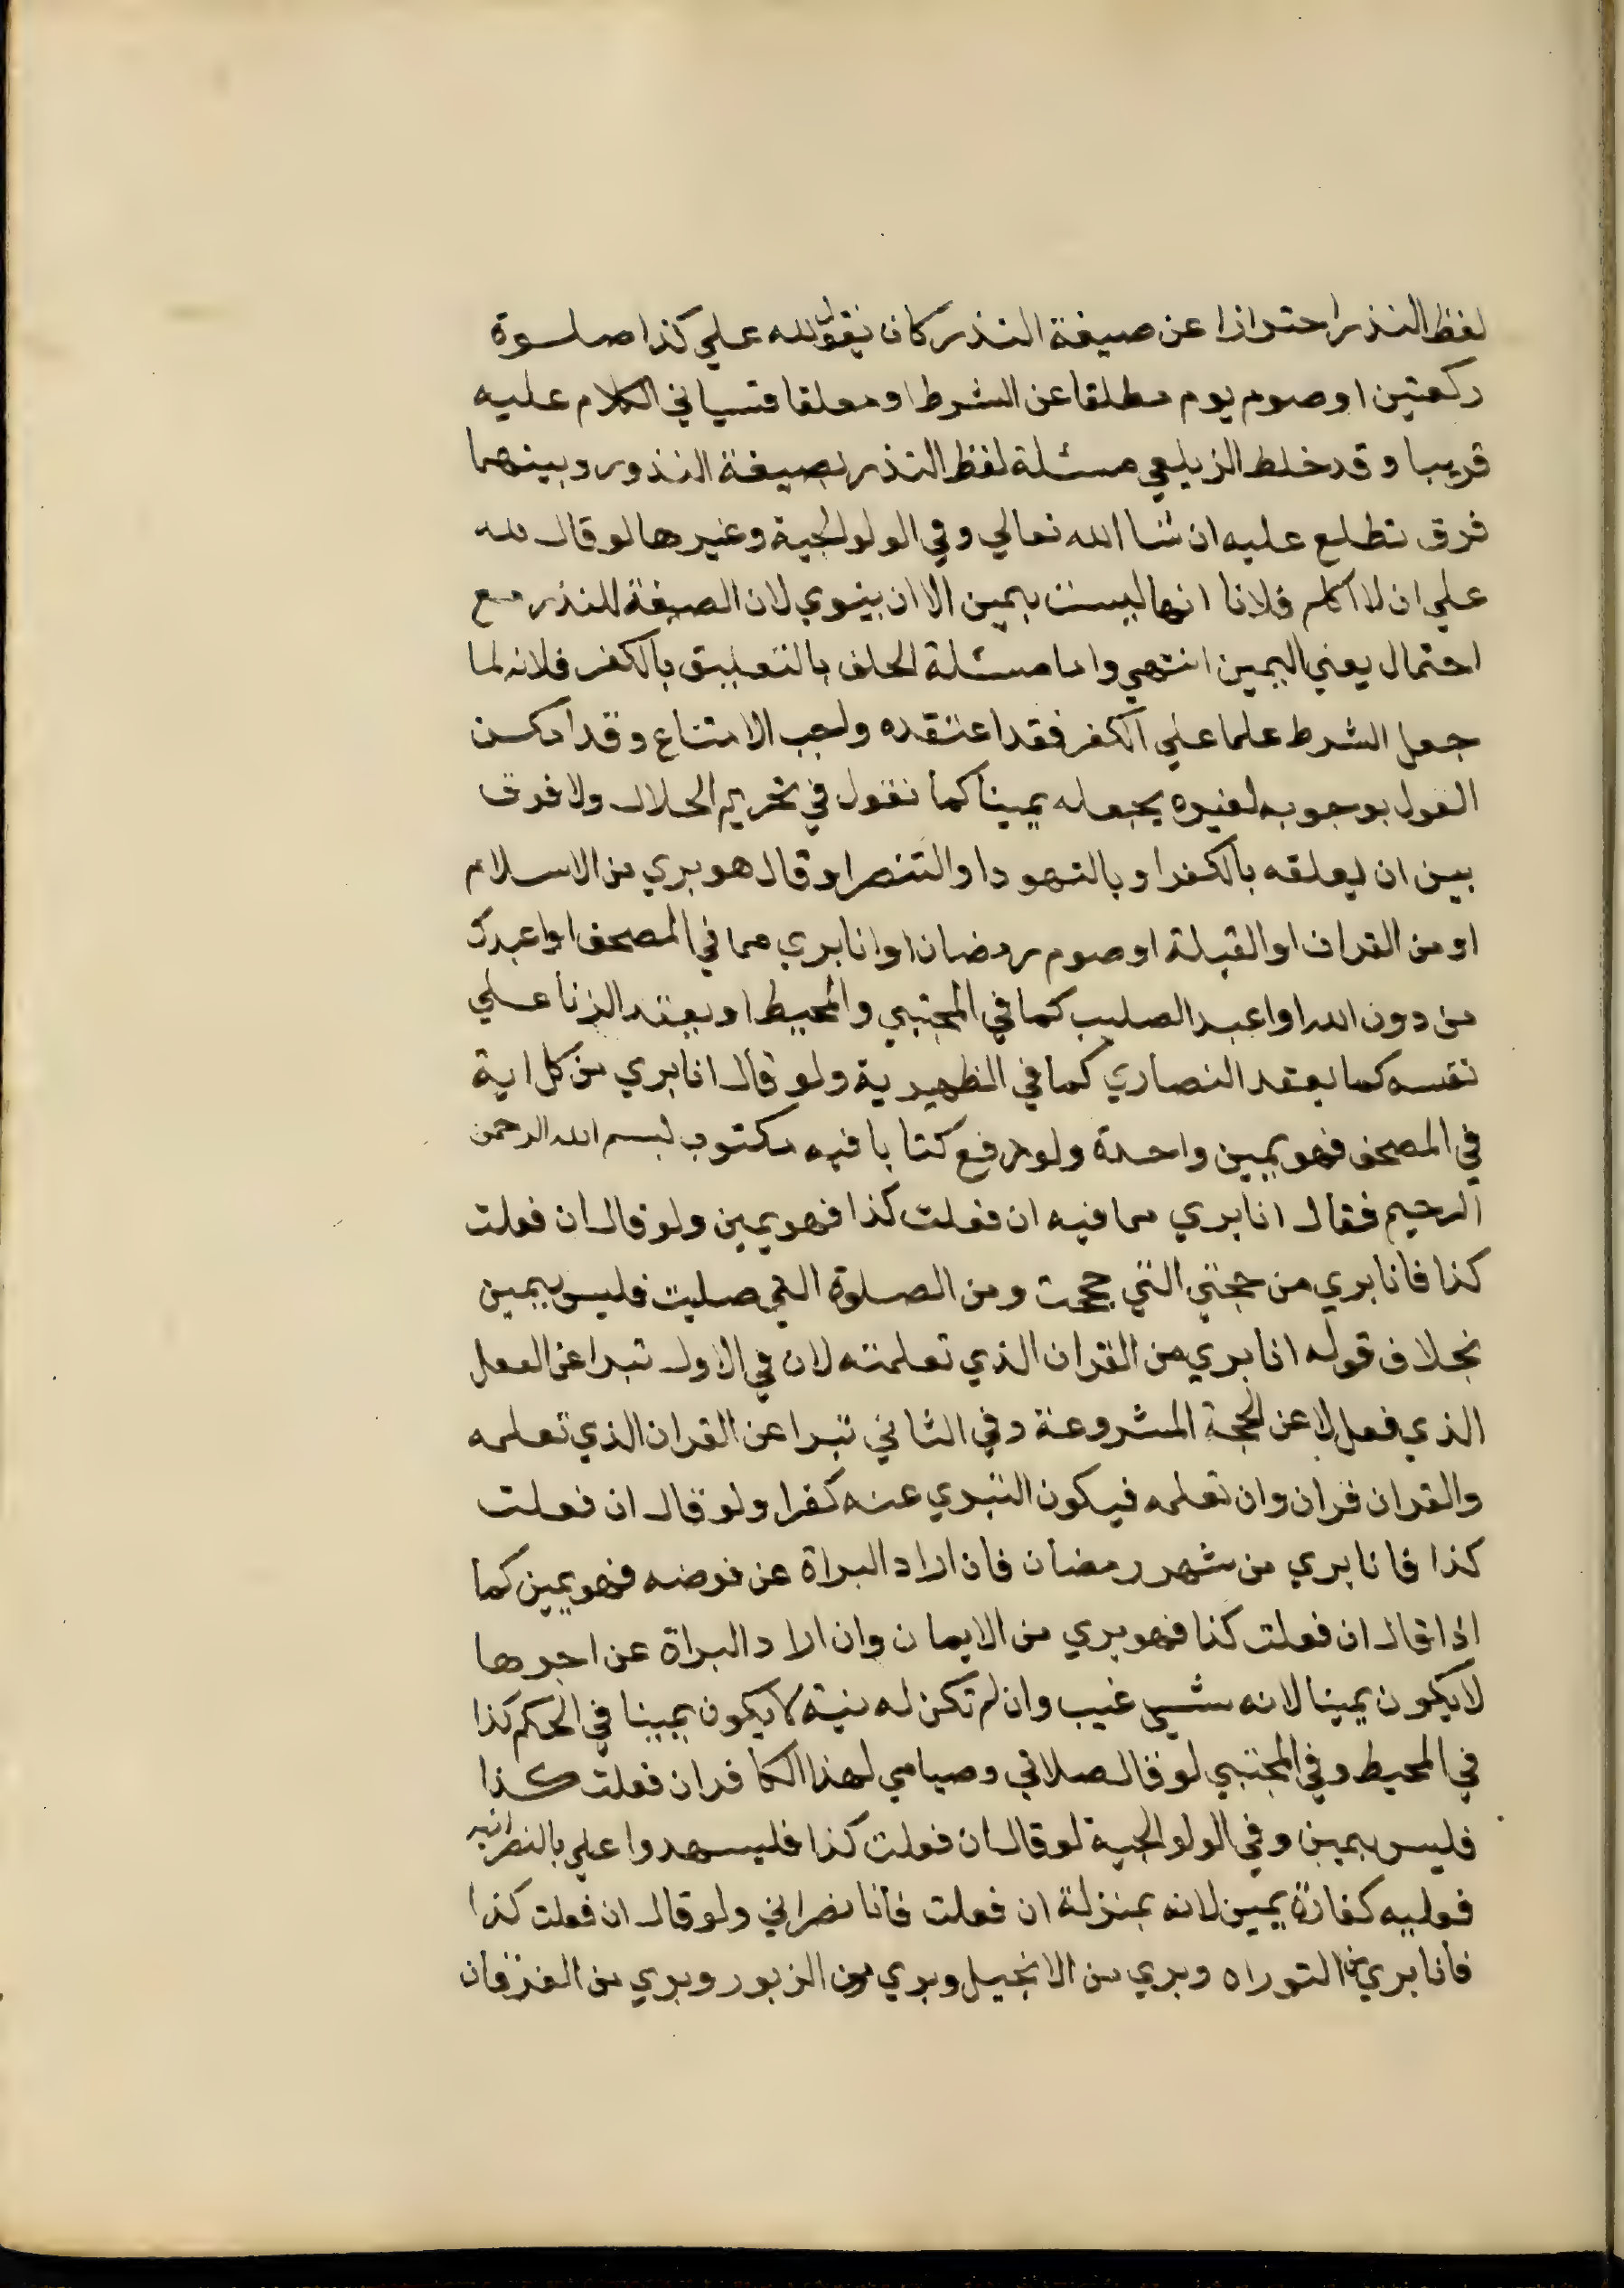 لفظ النذر احترازا عن صيغة النذر كان يقول لله علي كذا صلوة
ركعتين او صوم يوم مطلقا عن الشرط او معلقا فسياتي الكلام عليه
قريبا وقد خلط الزيلعي مسئلة لفظ النذر بصيغة النذور وبينهما
فرق تطلع عليه ان شا الله تعالي وفي الولوالجية وغيرها لو قال لله
علي ان لا اكلم فلانا انها ليست بيمين الا ان ينوي لان الصيغة للنذر مع
احتمال يعني اليمين انتهي واما مسئلة الحلف بالتعليق بالكفر فلانه لما
جعل الشرط علما علي الكفر فقد اعتقده واجب الامتناع وقد امكن
القول بوجوبه لغيره يجعله يمينا كما نقول في تحريم الحلال ولا فرق
بين ان يعلقه بالكفر او بالتهود او التنصر او قال هو بري من الاسلام
او من القران او القبلة او صوم رمضان او انا بري مما في المصحف او اعبدك
من دون الله او اعبد الصليب كما في المجتبي والمحيط او يعقد الزنا علي
نفسه كما يعقد النصاري كما في الظهيرية ولو قال انا بري من كل اية
في المصحف فهو يمين واحدة ولو رفع كتابا فيه مكتوب بسم الله الرحمن
الرحيم فقال انا بري مما فيه ان فعلت كذا فهو يمين ولو قال ان فعلت
كذا فانا بري من حجتي التي حججت ومن الصلوة التي صليت فليس بيمين
بخلاف قوله انا بري من القران الذي تعلمته لان في الاول تبرا عن الفعل
الذي فعل لا عن الحجة المشروعة وفي الثاني تبرا عن القران الذي تعلمه
والقران قران وان تعلمه فيكون التبري عنه كفرا ولو قال ان فعلت
كذا فانا بري من شهر رمضان فان اراد البراة عن فرضه فهو يمين كما
اذا قال ان فعلت كذا فهو بري من الايمان وان اراد البراة عن اجرها
لا يكون يمينا لانه شيي غيب وان لم تكن له نية لا يكون يمينا في الحكم كذا
في المحيط وفي المجتبي لو قال صلاتي وصيامي لهذا الكافر ان فعلت كذا
فليس بيمين وفي الولوالجية لو قال ان فعلت كذا فليسهدوا علي بالنصرانية
فعليه كفارة يمين لانه بمنزلة ان فعلت فانا نصراني ولو قال ان فعلت كذا
فانا بري من التوراه وبري من الانجيل وبري من الزبور وبري من الفرقان